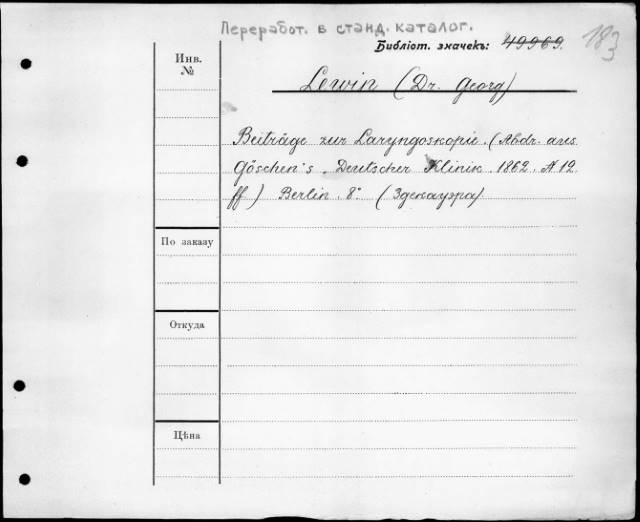 Переработ. в станд. каталог.
Библіот. значекъ: 49969.
183
Инв. №
Lewin (Dr. Georg)
Beiträge zur Laryngoskopie. (Abdr. aus
Göschen's „Deutscher Klinik 1862. № 12
ff.) Berlin 8°. (Здекауэра)
По заказу
Откуда
Цѣна